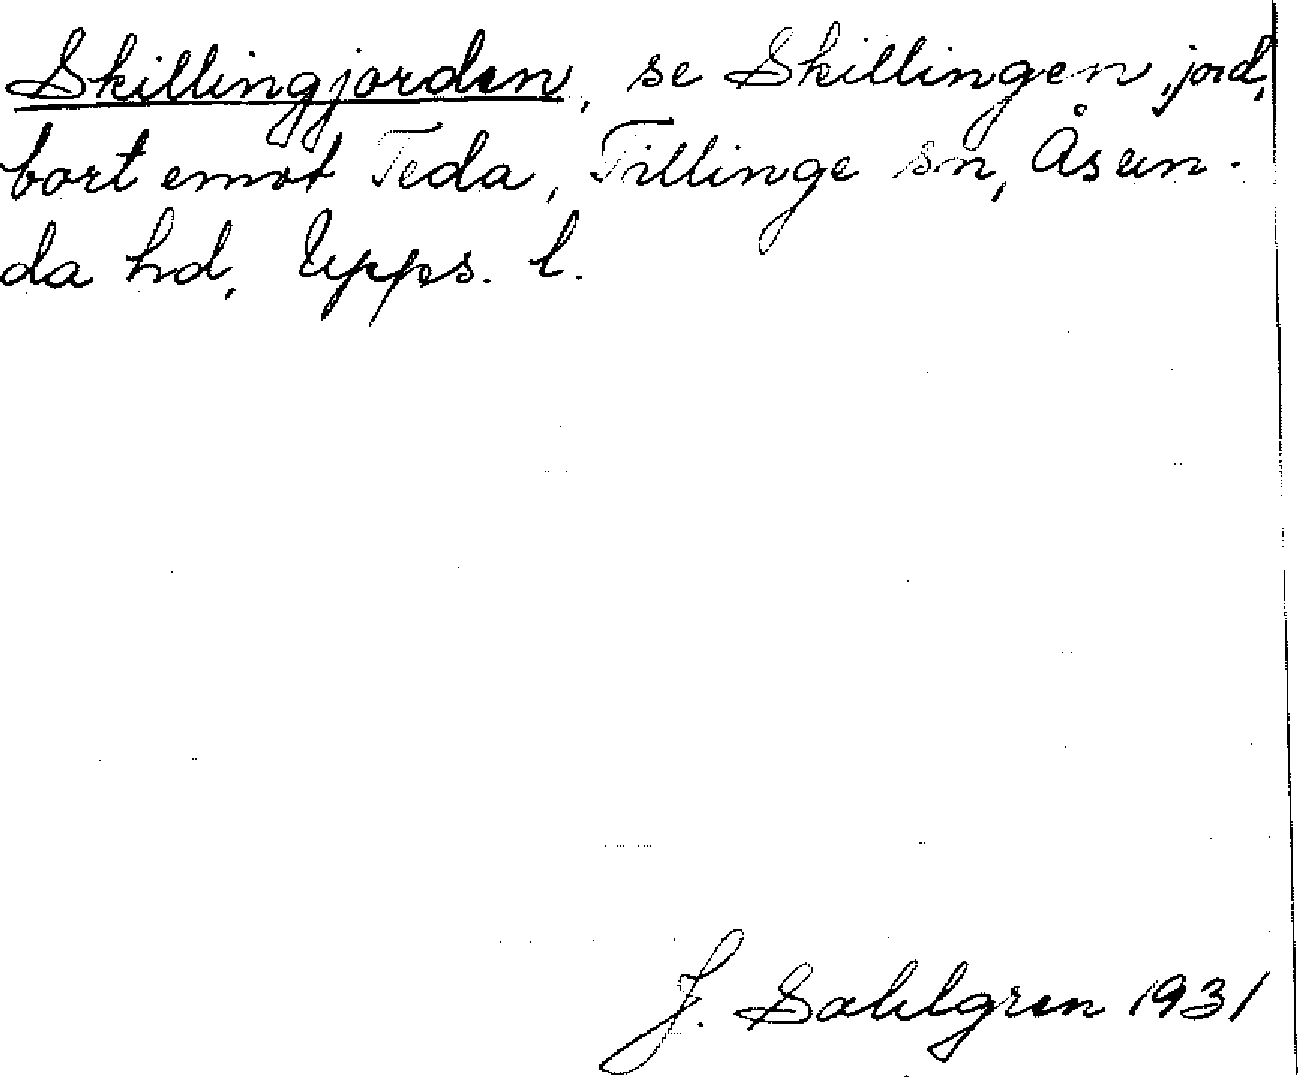 Skillingjorden, se Skillingen, jord,
bort emot Teda, Tillinge sn, Åsun-
da hd, Upps. l.
J. Sahlgren 1931